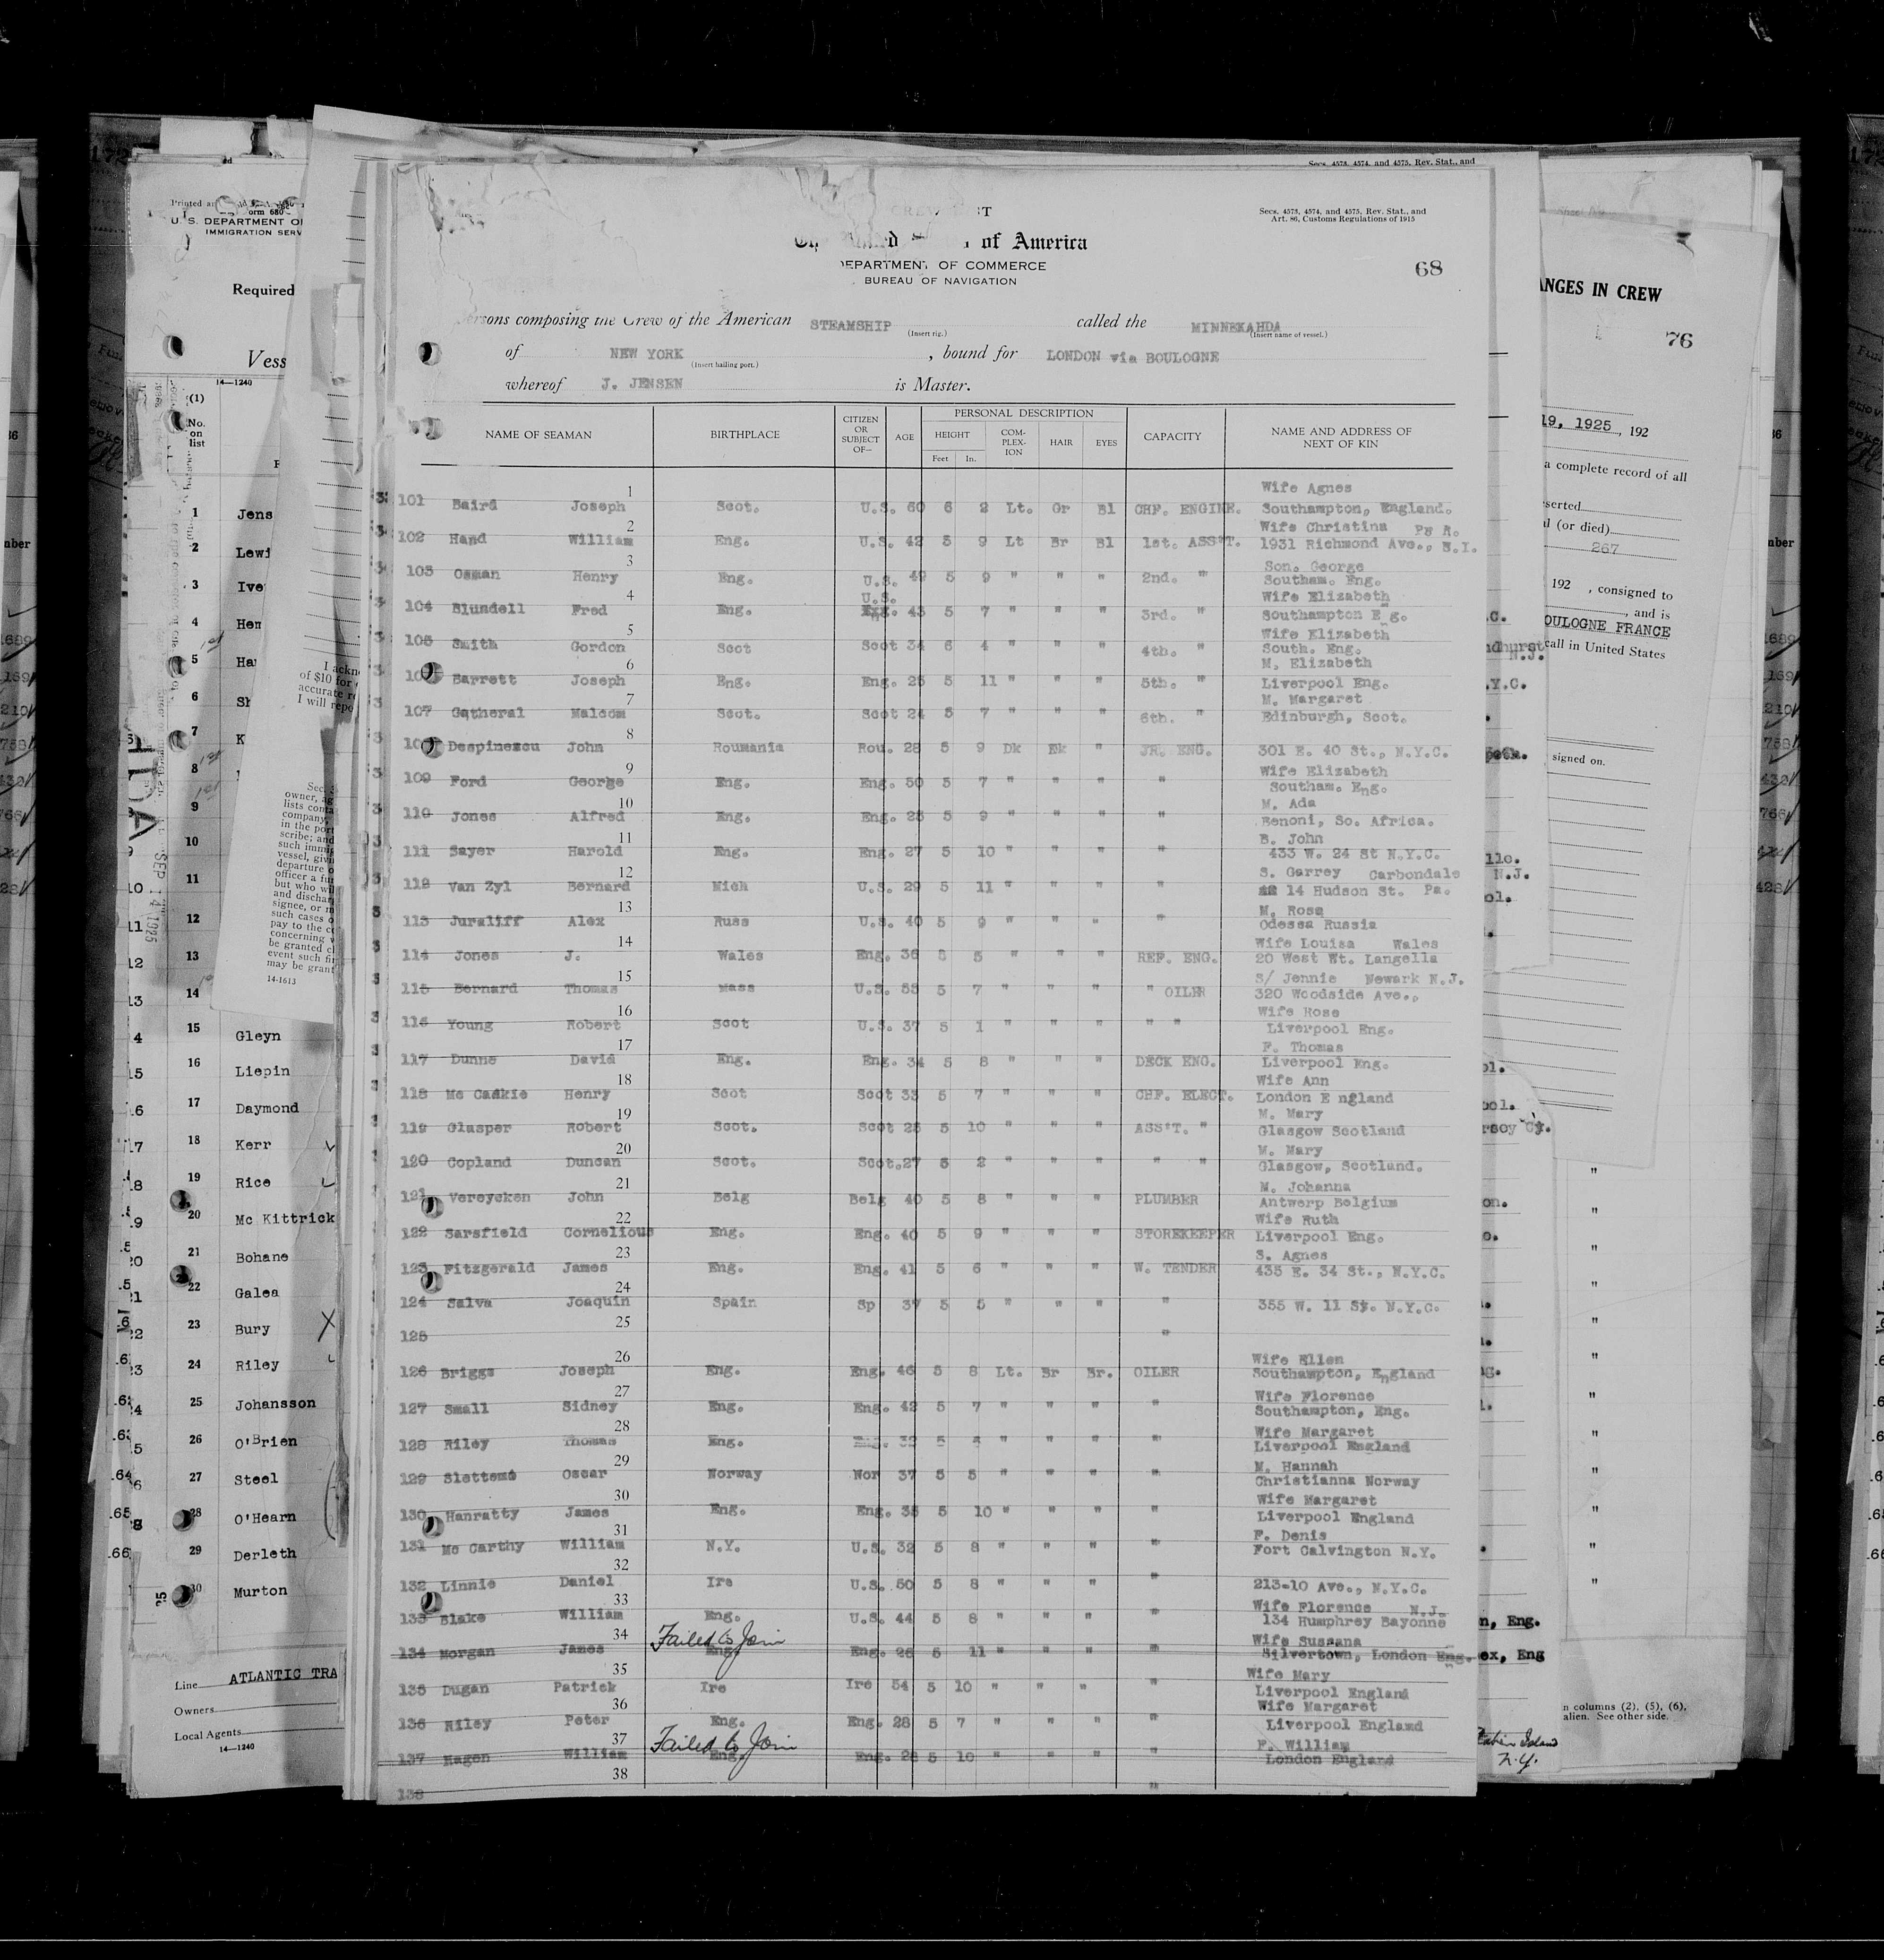 CREW LIST
Secs. 4573, 4574, and 4575, Rev. Stat., and
Art. 86, Customs Regulations of 1915
of America
DEPARTMENT OF COMMERCE
BUREAU OF NAVIGATION
68
composing the Crew of the American STEAMSHIP called the MINNEKAHDA
(Insert rig.) (Insert name of vessel.)
of NEW YORK , bound for LONDON via BOULOGNE
(Insert hailing port.)
whereof J. JENSEN is Master.
NAME OF SEAMAN BIRTHPLACE CITIZEN OR SUBJECT OF— AGE PERSONAL DESCRIPTION CAPACITY NAME AND ADDRESS OF NEXT OF KIN
HEIGHT COM-PLEX-ION HAIR EYES
Feet In.
1 Wife Agnes
101 Baird Joseph Scot. U.S. 60 6 2 Lt. Gr Bl CHF. ENGINE. Southampton, England.
2 Wife Christina
102 Hand William Eng. U.S. 42 5 9 Lt Br Bl 1st. ASS'T. 1931 Richmond Ave., N.Y.
3 Son. George
103 Osman Henry Eng. U.S. 49 5 9 " " " 2nd. " Southam. Eng.
4 U.S. Wife Elizabeth
104 Blundell Fred Eng. Eng. 43 5 7 " " " 3rd. " Southampton Eng.
5 Wife Elizabeth
105 Smith Gordon Scot Scot 34 6 4 " " " 4th. " South. Eng.
6 M. Elizabeth
Barrett Joseph Eng. Eng. 25 5 11 " " " 5th. " Liverpool Eng.
7 M. Margaret
107 Gatheral Malcom Scot. Scot 24 5 7 " " " 6th. " Edinburgh, Scot.
8
Despinezcu John Roumania Rou. 28 5 9 Dk Bk " JR. ENG. 301 E. 40 St., N.Y.C.
9 Wife Elizabeth
109 Ford George Eng. Eng. 50 5 7 " " " " Southam. Eng.
10 M. Ada
110 Jones Alfred Eng. Eng. 25 5 9 " " " " Benoni, So. Africa.
11 B. John
111 Sayer Harold Eng. Eng. 27 5 10 " " " " 433 W. 24 St N.Y.C.
12 S. Garrey Carbondale
112 Van Zyl Bernard Mich U.S. 29 5 11 " " " " 14 Hudson St. Pa.
13 M. Rose
113 Juraliff Alex Russ U.S. 40 5 9 " " " " Odessa Russia
14 Wife Louisa Wales
114 Jones J. Wales Eng. 36 5 5 " " " REF. ENG. 20 West Wt. Langella
15 S/ Jennie Newark N.J.
115 Bernard Thomas Mass U.S. 5 7 " " " " OILER 320 Woodside Ave.,
16 Wife Rose
116 Young Robert Scot U.S. 37 5 1 " " " " " Liverpool Eng.
17 F. Thomas
117 Dunne David Eng. Eng. 34 5 8 " " " DECK ENG. Liverpool Eng.
18 Wife Ann
118 Mc Caskie Henry Scot Scot 33 5 7 " " " CHF. ELECT. London England
19 M. Mary
119 Glasper Robert Scot. Scot 28 5 10 " " " ASS'T. " Glasgow Scotland
20 M. Mary
120 Copland Duncan Scot. Scot. 27 5 2 " " " " " Glasgow, Scotland.
21 M. Johanna
121 Vereycken John Belg Belg 40 5 8 " " " PLUMBER Antwerp Belgium
22 Wife Ruth
122 Sarsfield Cornelious Eng. Eng. 40 5 9 " " " STOREKEEPER Liverpool Eng.
23 S. Agnes
123 Fitzgerald James Eng. Eng. 41 5 6 " " " W. TENDER 435 E. 34 St., N.Y.C.
24
124 Salva Joaquin Spain Sp 37 5 5 " " " " 355 W. 11 St. N.Y.C.
25
125 "
26 Wife Ellen
126 Briggs Joseph Eng. Eng. 46 5 8 Lt. Br Br. OILER Southampton, England
27 Wife Florence
127 Small Sidney Eng. Eng. 42 5 7 " " " " Southampton, Eng.
28 Wife Margaret
128 Riley Thomas Eng. Eng. 32 5 " " " " Liverpool England
29 M. Hannah
129 Slettemo Oscar Norway Nor 37 5 5 " " " " Christianna Norway
30 Wife Margaret
130 Hanratty James Eng. Eng. 35 5 10 " " " " Liverpool England
31 F. Denis
131 Mc Carthy William N.Y. U.S. 32 5 8 " " " " Fort Calvington N.Y.
32
132 Linnie Daniel Ire U.S. 50 5 8 " " " " 213-10 Ave., N.Y.C.
33 Wife Florence N.J.
133 Blake William Eng. U.S. 44 5 8 " " " " 134 Humphrey Bayonne
34 Failed to Join Wife Sussana
134 Morgan James Eng. Eng. 26 5 11 " " " " Silvertown, London Eng.
35 Wife Mary
135 Dugan Patrick Ire Ire 54 5 10 " " " " Liverpool England
36 Wife Margaret
136 Riley Peter Eng. Eng. 28 5 7 " " " " Liverpool England
37 Failed to Join F. William
137 Hagen William Eng. Eng. 28 5 10 " " " " London England
38
138 "
U. S. DEPARTMENT OF
IMMIGRATION SERV
Required
Vess
14—1240
(1)
No. on list
1 Jens
2 Lewi
3 Ive
4 Hen
5 Ha
6 Sh
7 K
8
9
10
11
12
13
14
15 Gleyn
16 Liepin
17 Daymond
18 Kerr
19 Rice
20 Mc Kittrick
21 Bohane
22 Galea
23 Bury
24 Riley
25 Johansson
26 O'Brien
27 Steel
28 O'Hearn
29 Derleth
30 Murton
Line ATLANTIC TRA
Owners
Local Agents
14—1240
SEP 14 1925
I ackn
of $10 for
accurate
I will repe
owner, ag
lists conta
company,
in the port
scribe; and
such immi
vessel, givi
departure o
officer a fu
but who wi
and dischar
signee, or m
such cases o
pay to the c
concerning
be granted c
event such fi
may be grant
14-1613
ANGES IN CREW
76
19, 1925, 192
a complete record of all
serted
l (or died)
267
192 , consigned to
, and is
OULOGNE FRANCE
call in United States
signed on.
n columns (2), (5), (6),
alien. See other side.
N.Y.